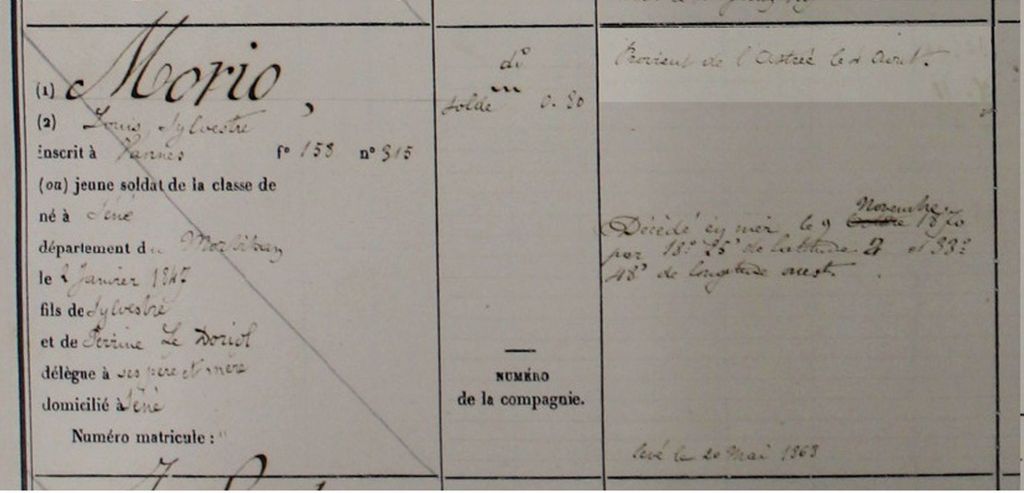 (1) Morio,
(2) Louis, Sylvestre
inscrit à Vannes fº 158 nº 315
(ou) jeune soldat de la classe de
né à Séné
département du Morbihan
le 2 Janvier 1847
fils de Sylvestre
et de Perrine Le Doriol
délègue à ses père et mère
domicilié à Séné
Numéro matricule : "
dº
solde 0.80
NUMÉRO
de la compagnie.
Provient de l'Astrée le 1 Août.
Novembre
Décédé en mer le 9 Octobre 1870
par 18º 25' de latitude et 38º
48' de longitude ouest.
levé le 20 Mai 1868